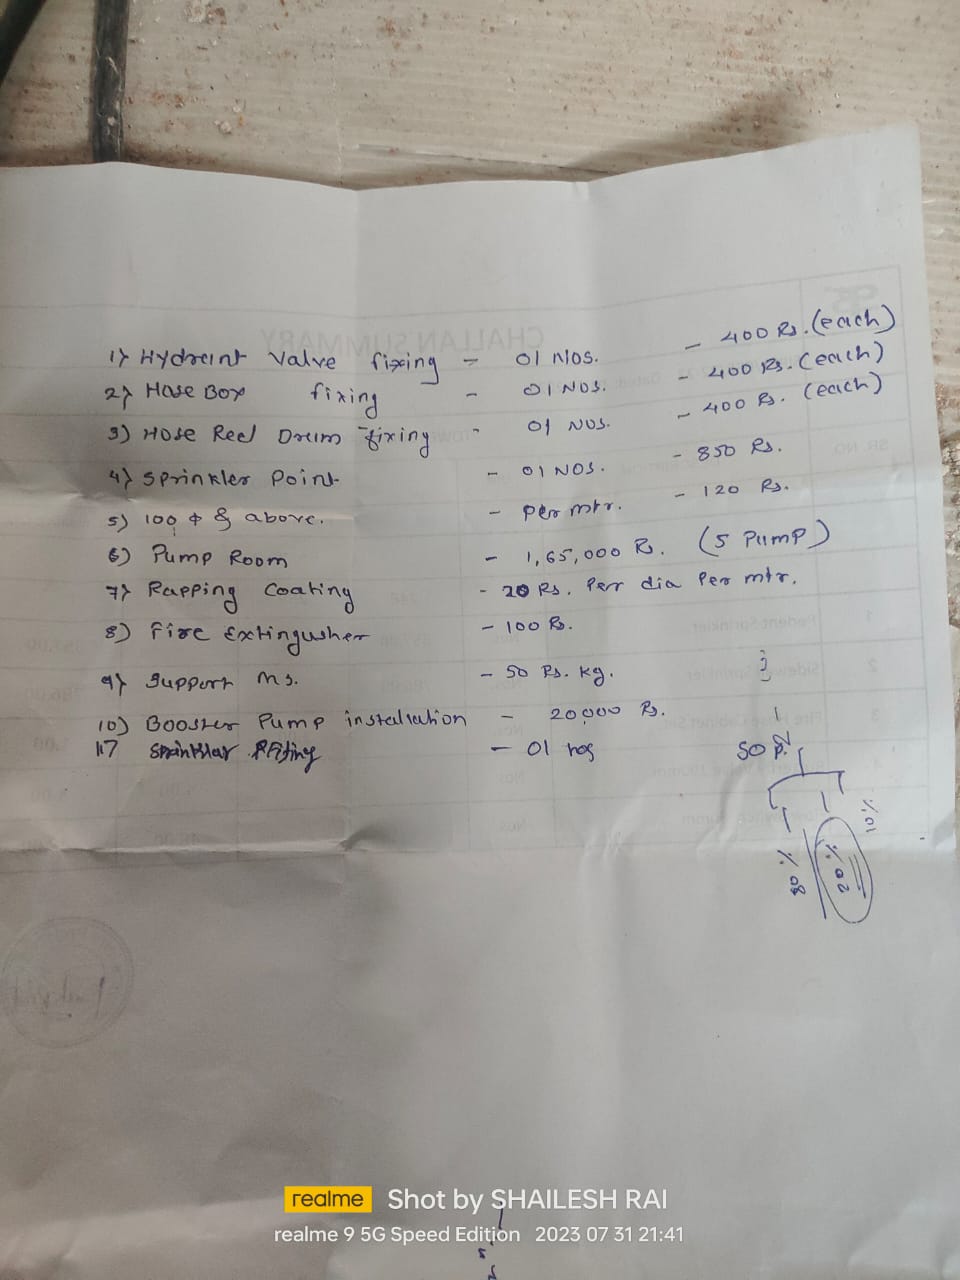 1) Hydraint Valve fixing - 01 NOS. - 400 Rs. (each)
2) Hose Box fixing - 01 NOS. - 400 Rs. (each)
3) Hose Reel Drum fixing - 01 NOS. - 400 Rs. (each)
4) Sprinkler Point - 01 NOS. - 850 Rs.
5) 100 ϕ & above. - Per mtr. - 120 Rs.
6) Pump Room - 1,65,000 Rs. (5 Pump)
7) Rapping Coating - 20 Rs. Per dia Per mtr.
8) Fire Extingusher - 100 Rs.
9) Support MS. - 50 Rs. kg.
10) Booster Pump installation - 20,000 Rs.
11) Sprinklar - 01 nos 50
10%
20%
80%
CHALLAN SUMMARY
realme Shot by SHAILESH RAI
realme 9 5G Speed Edition 2023 07 31 21:41